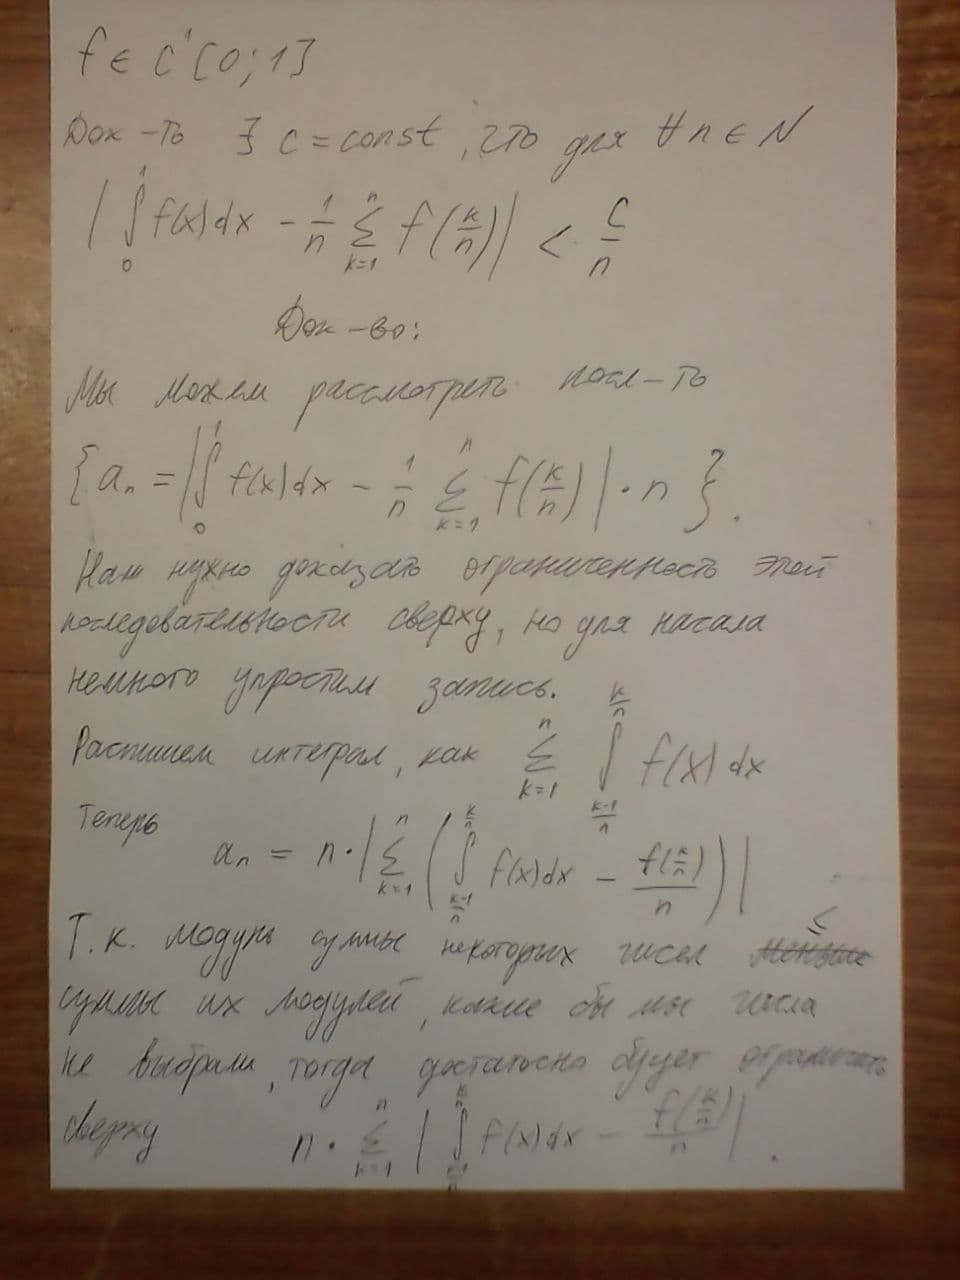 f ∈ C¹[0;1]
Док-ть ∃ c = const, что для ∀ n ∈ N
| ∫₀¹ f(x)dx − 1/n ∑ₖ₌₁ⁿ f(k/n) | < C/n
Док-во:
Мы можем рассмотреть посл-ть
{ aₙ = | ∫₀¹ f(x)dx − 1/n ∑ₖ₌₁ⁿ f(k/n) | · n }.
Нам нужно доказать ограниченность этой
последовательности сверху, но для начала
немного упростим запись.
Распишем интеграл, как ∑ₖ₌₁ⁿ ∫_{(k-1)/n}^{k/n} f(x)dx
Теперь
aₙ = n · | ∑ₖ₌₁ⁿ ( ∫_{(k-1)/n}^{k/n} f(x)dx − f(k/n)/n ) |
Т.к. модуль суммы некоторых чисел ≤
суммы их модулей, какие бы мы числа
не выбрали, тогда достаточно будет ограничить
сверху n · ∑ₖ₌₁ⁿ | ∫_{(k-1)/n}^{k/n} f(x)dx − f(k/n)/n | .